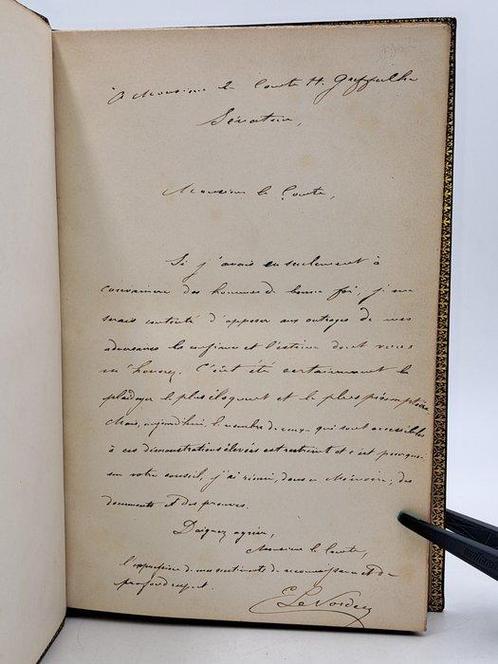 à Monsieur le Comte H. Greffulhe
Sénateur,
Monsieur le Comte,
Si j'avais eu seulement à
convaincre des hommes de bonne foi, je me
serais contenté d'opposer aux outrages de mes
adversaires la confiance et l'estime dont vous
m'honorez. C'eût été certainement le
plaidoyer le plus éloquent et le plus péremptoire
Mais, aujourd'hui, le nombre de ceux qui sont accessibles
à ces démonstrations élevées est restreint et c'est pourquoi
sur votre conseil, j'ai réuni, dans ce Mémoire, des
documents et des preuves.
Daignez agréer,
Monsieur le Comte,
l'expression de mes sentiments de reconnaissance et de
profond respect.